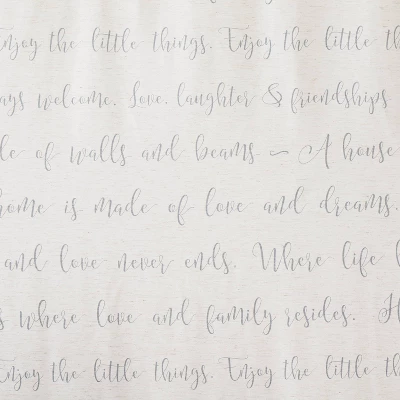 Enjoy the little things. Enjoy the little th
ays welcome. Love, laughter & friendships
de of walls and beams ~ A house
home is made of love and dreams.
and love never ends. Where life l
s where love and family resides. H
Enjoy the little things. Enjoy the little th